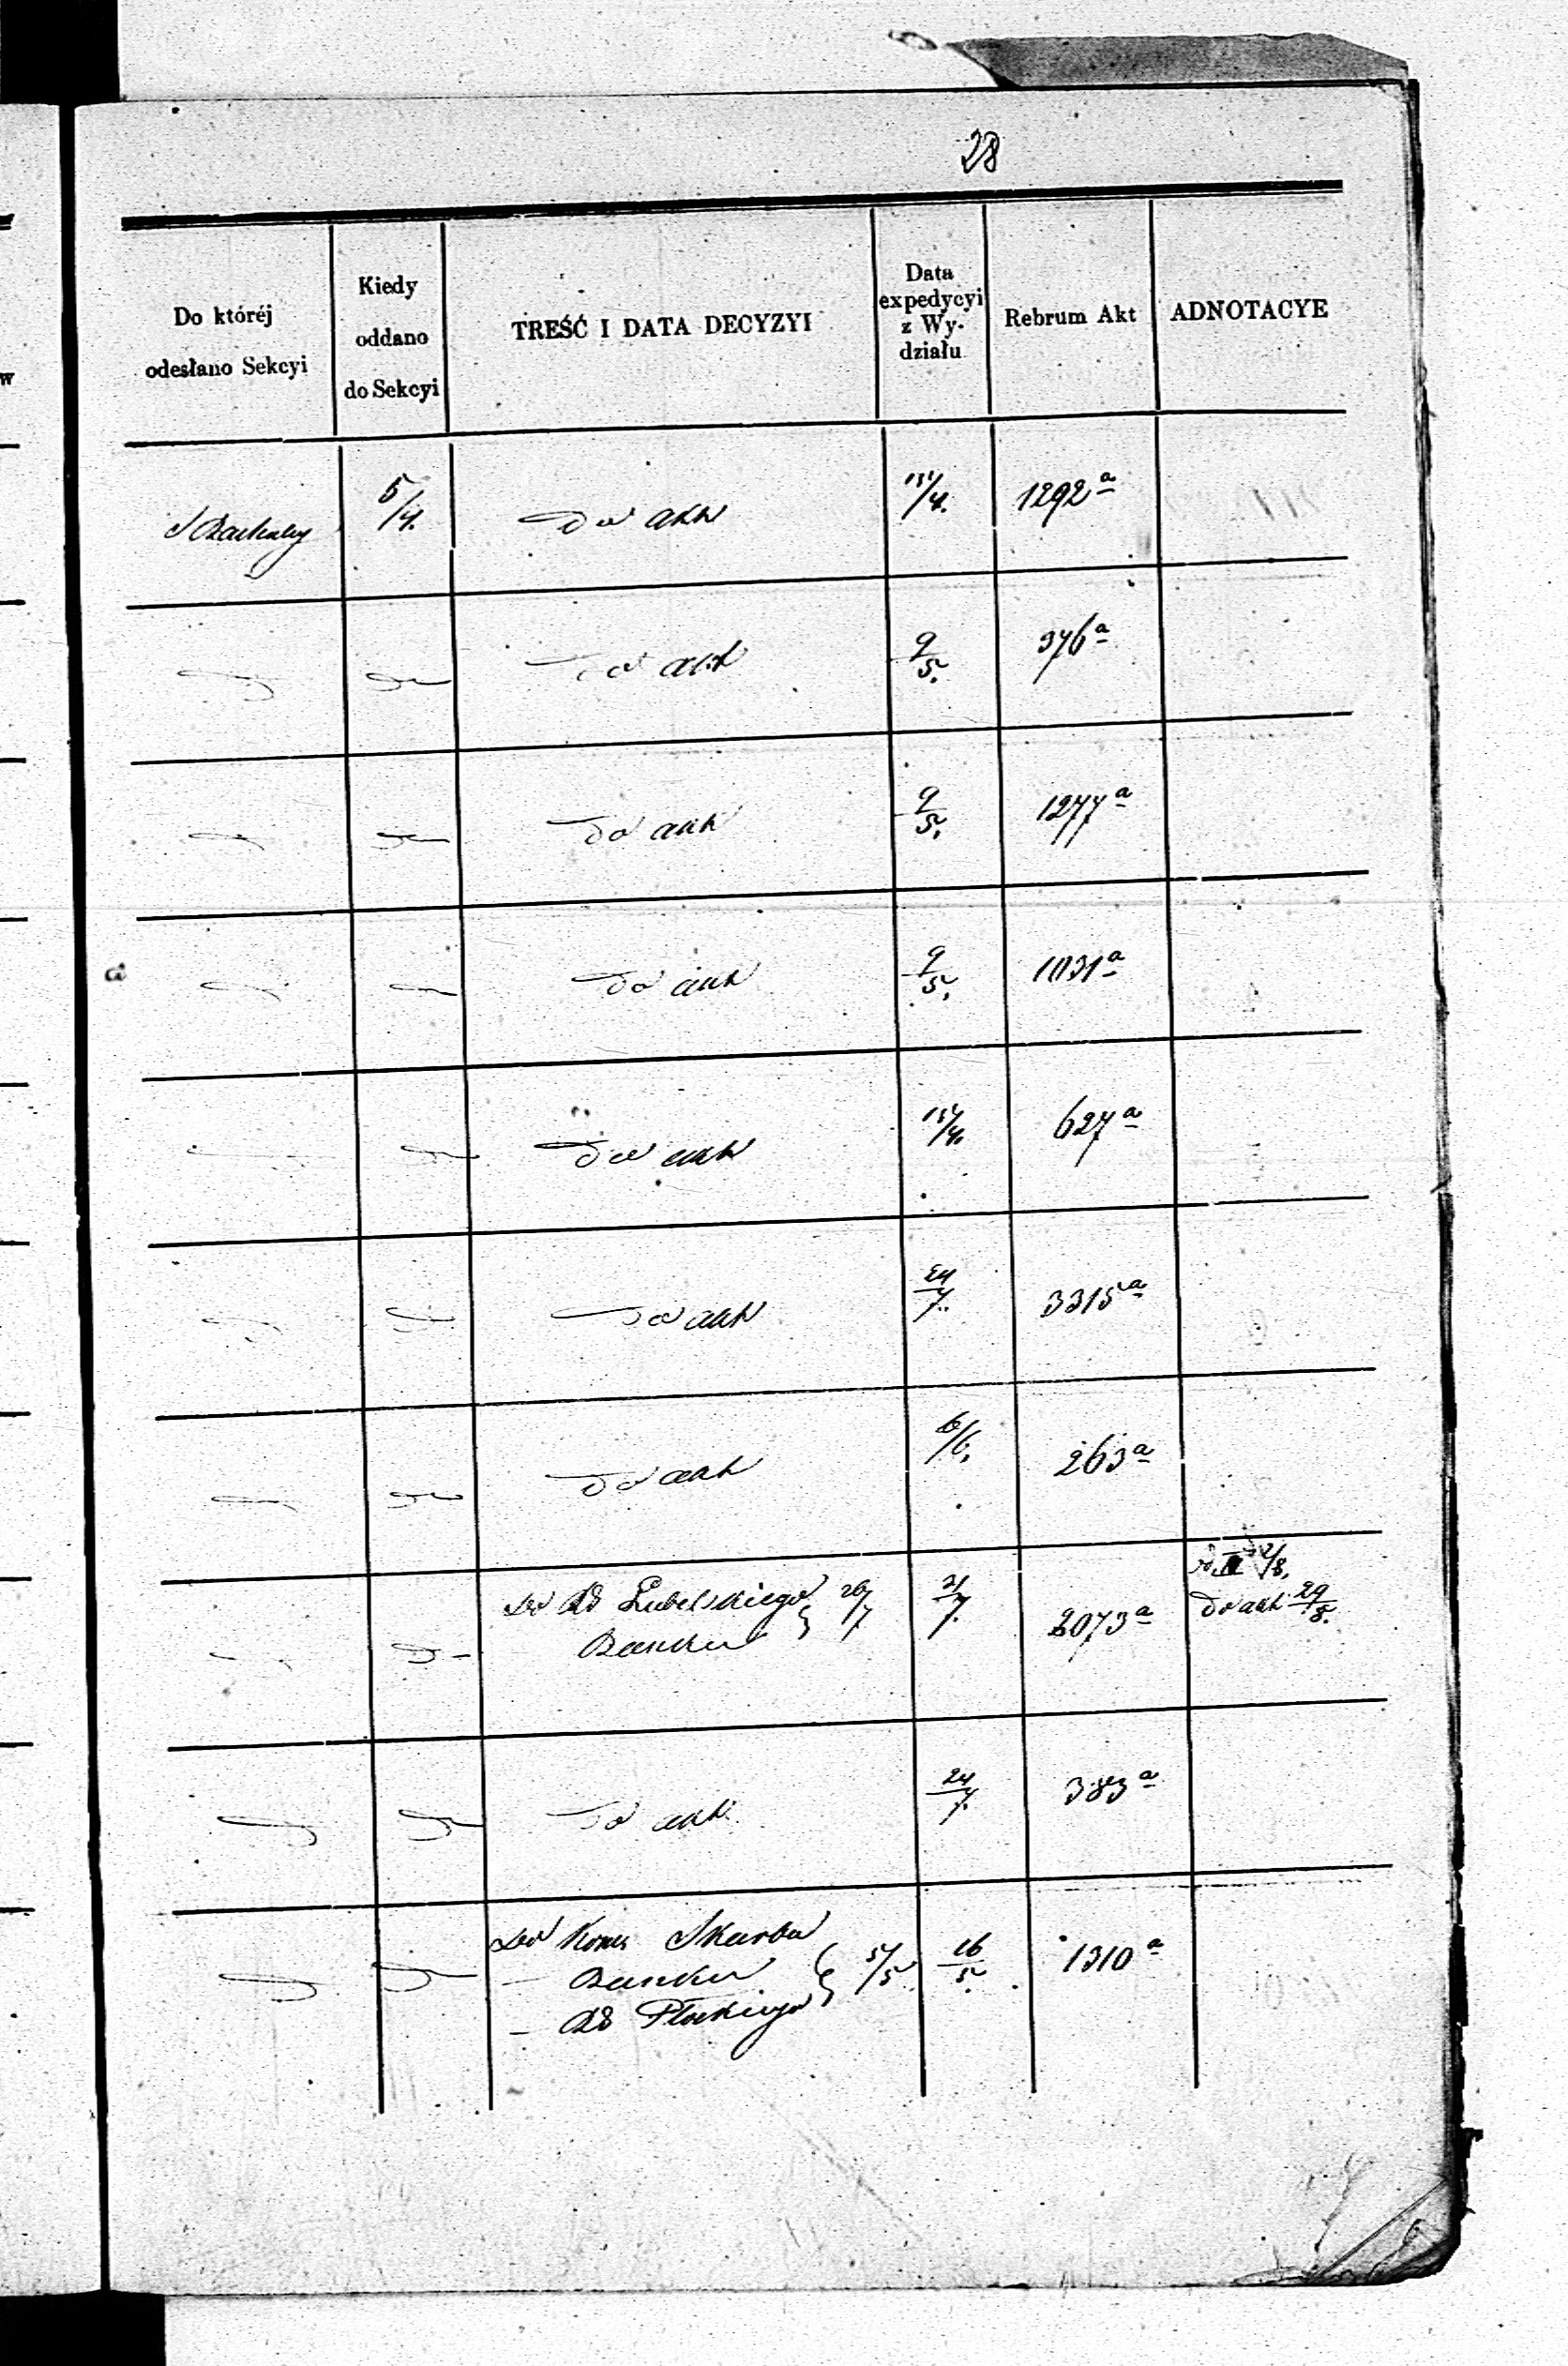 28
Do któréj odesłano Sekcyi
Kiedy oddano do Sekcyi
TREŚĆ I DATA DECYZYI
Data expedycyi z Wy-działu
Rebrum Akt
ADNOTACYE
5/4. Do akt 1292 a
Do akt 9/5. 376 a
Do akt 9/5. 1277 a
Do akt 9/5. 1031 a
Do akt 627 a
Do akt 24/7. 3315 a
Do akt 6/6. 263 a
Do Rd Lubelskiego 2073 a
Banku
Do akt 29/8.
Do akt 24/7. 383 a
Do Komis Skarbu
— Banku 5/5 16/5. 1310 a
— Rd Płockiego